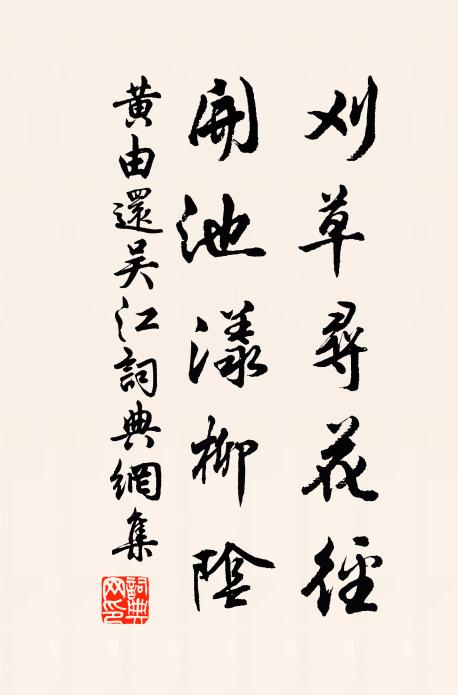 刈草尋花徑
開池漾柳陰
黄由還吴江詞典網集
詞典网印